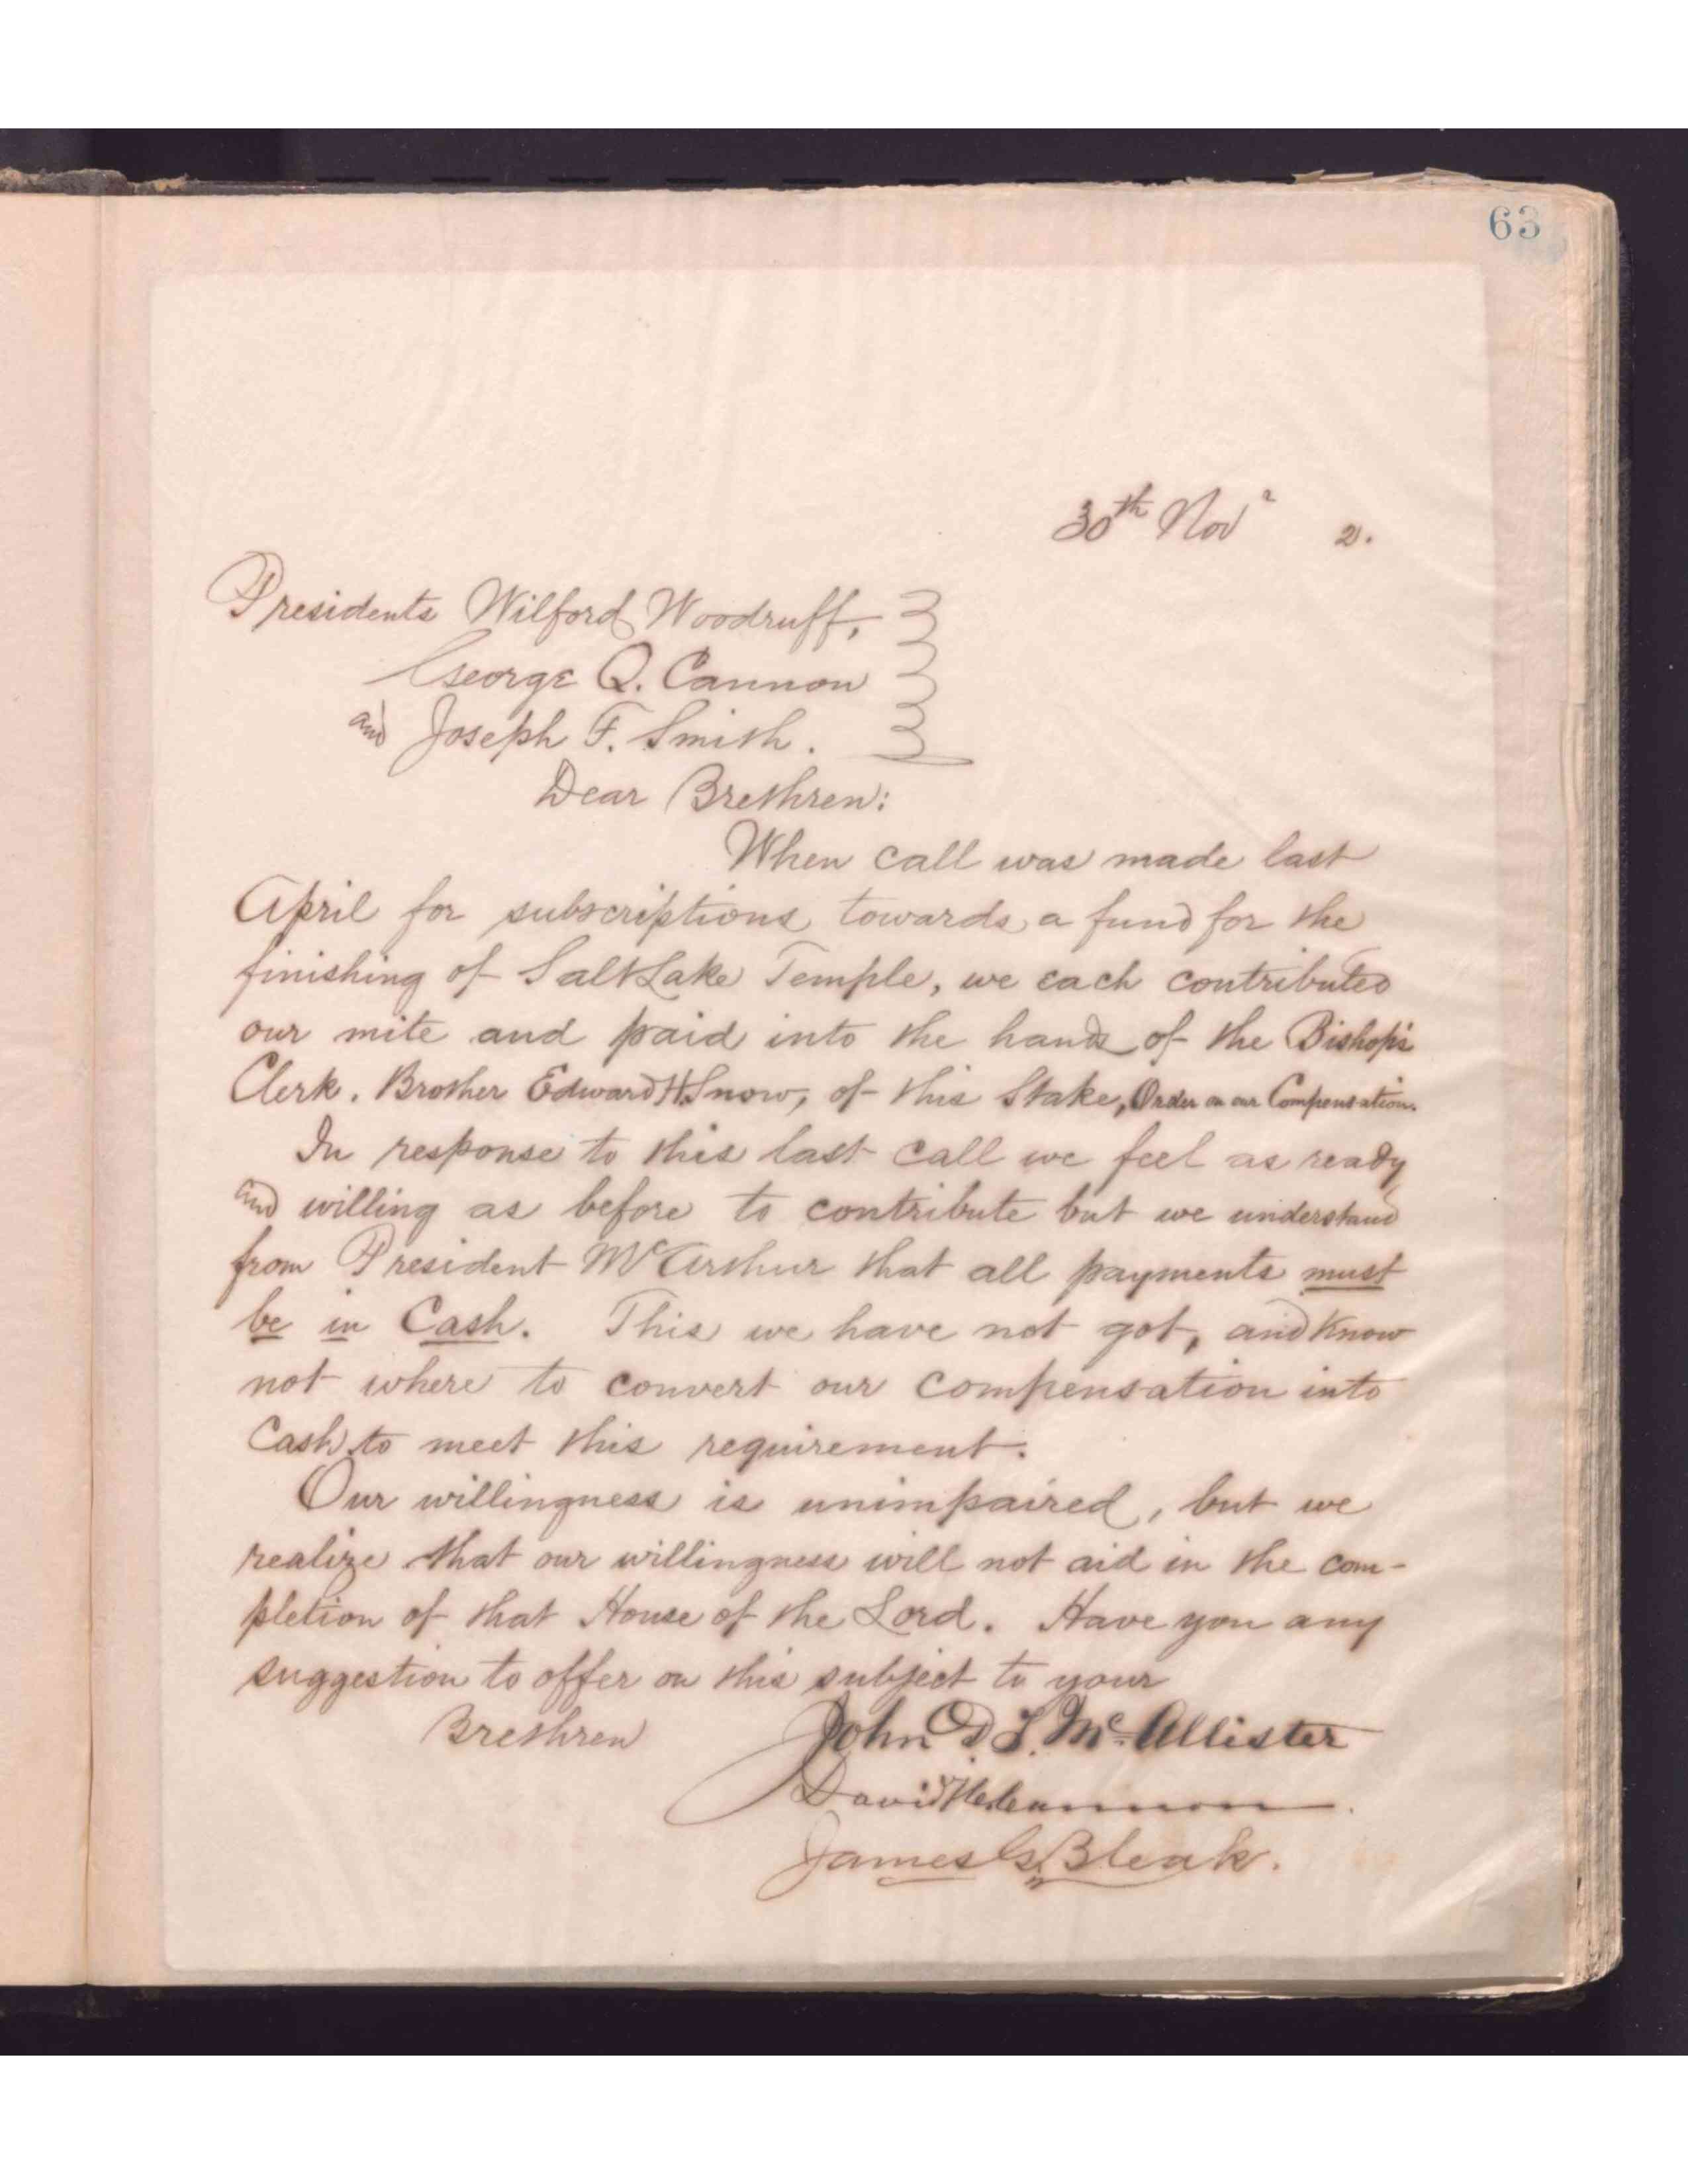 63
30th Novr 2.
Presidents Wilford Woodruff,
George Q. Cannon
and Joseph F. Smith.
Dear Brethren:
When call was made last
April for subscriptions towards a fund for the
finishing of Salt Lake Temple, we each contributed
our mite and paid into the hands of the Bishop's
Clerk. Brother Edward H Snow, of this Stake, Order on our Compensation.
In response to this last call we feel as ready
and willing as before to contribute but we understand
from President McArthur that all payments must
be in Cash. This we have not got, and know
not where to convert our compensation into
Cash to meet this requirement.
Our willingness is unimpaired, but we
realize that our willingness will not aid in the com-
pletion of that House of the Lord. Have you any
suggestion to offer on this subject to your
Brethren John D. T. McAllister
David H. Cannon.
James G. Bleak.